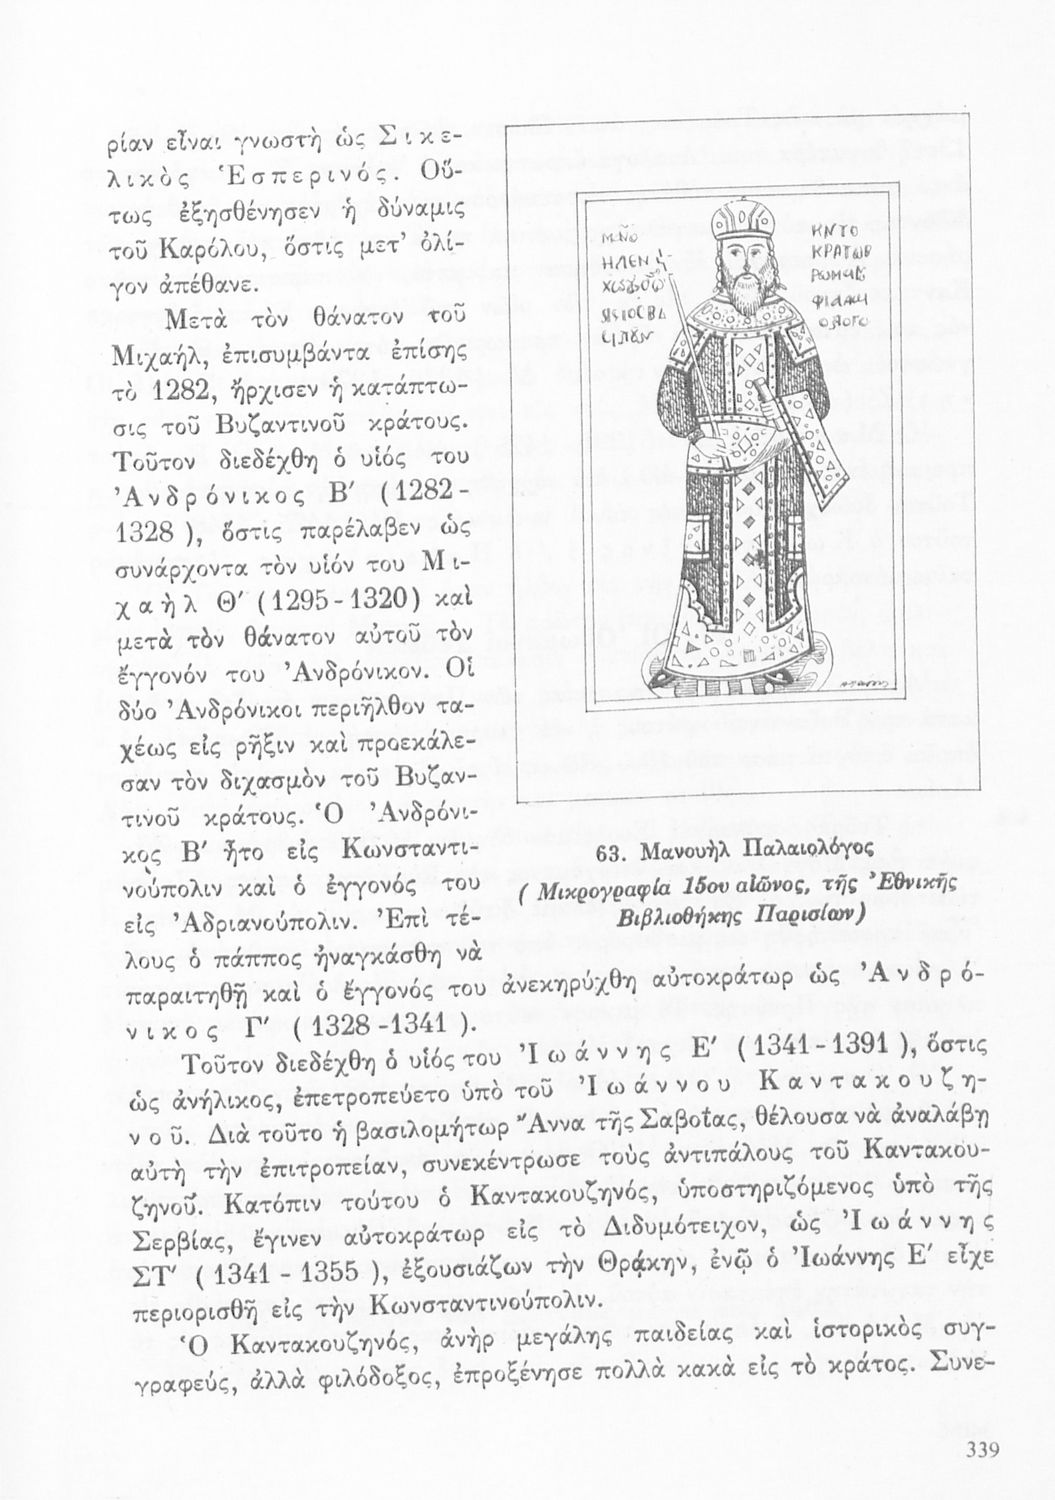 ρίαν εἶναι γνωστὴ ὡς Σικε-
λικὸς Ἑσπερινός. Οὕ-
τως ἐξησθένησεν ἡ δύναμις
τοῦ Καρόλου, ὅστις μετ’ ὀλί-
γον ἀπέθανε.
Μετὰ τὸν θάνατον τοῦ
Μιχαήλ, ἐπισυμβάντα ἐπίσης
τὸ 1282, ἤρχισεν ἡ κατάπτω-
σις τοῦ Βυζαντινοῦ κράτους.
Τοῦτον διεδέχθη ὁ υἱός του
Ἀνδρόνικος Β′ (1282-
1328 ), ὅστις παρέλαβεν ὡς
συνάρχοντα τὸν υἱόν του Μι-
χαὴλ Θ′ (1295-1320) καὶ
μετὰ τὸν θάνατον αὐτοῦ τὸν
ἔγγονόν του Ἀνδρόνικον. Οἱ
δύο Ἀνδρόνικοι περιῆλθον τα-
χέως εἰς ρῆξιν καὶ προεκάλε-
σαν τὸν διχασμὸν τοῦ Βυζαν-
τινοῦ κράτους. Ὁ Ἀνδρόνι-
κος Β′ ἦτο εἰς Κωνσταντι-
νούπολιν καὶ ὁ ἔγγονός του
εἰς Ἀδριανούπολιν. Ἐπὶ τέ-
λους ὁ πάππος ἠναγκάσθη νὰ
παραιτηθῇ καὶ ὁ ἔγγονός του ἀνεκηρύχθη αὐτοκράτωρ ὡς Ἀνδρό-
νικος Γ′ ( 1328 -1341 ).
Τοῦτον διεδέχθη ὁ υἱός του Ἰωάννης Ε′ ( 1341-1391 ), ὅστις
ὡς ἀνήλικος, ἐπετροπεύετο ὑπὸ τοῦ Ἰωάννου Καντακουζη-
νοῦ. Διὰ τοῦτο ἡ βασιλομήτωρ Ἄννα τῆς Σαβοΐας, θέλουσα νὰ ἀναλάβῃ
αὐτὴ τὴν ἐπιτροπείαν, συνεκέντρωσε τοὺς ἀντιπάλους τοῦ Καντακου-
ζηνοῦ. Κατόπιν τούτου ὁ Καντακουζηνός, ὑποστηριζόμενος ὑπὸ τῆς
Σερβίας, ἔγινεν αὐτοκράτωρ εἰς τὸ Διδυμότειχον, ὡς Ἰωάννης
ΣΤ′ ( 1341 - 1355 ), ἐξουσιάζων τὴν Θράκην, ἐνῷ ὁ Ἰωάννης Ε′ εἶχε
περιορισθῆ εἰς τὴν Κωνσταντινούπολιν.
Ὁ Καντακουζηνός, ἀνὴρ μεγάλης παιδείας καὶ ἱστορικὸς συγ-
γραφεύς, ἀλλὰ φιλόδοξος, ἐπροξένησε πολλὰ κακὰ εἰς τὸ κράτος. Συνε-
63. Μανουὴλ Παλαιολόγος
( Μικρογραφία 15ου αἰῶνος, τῆς Ἐθνικῆς
Βιβλιοθήκης Παρισίων)
339